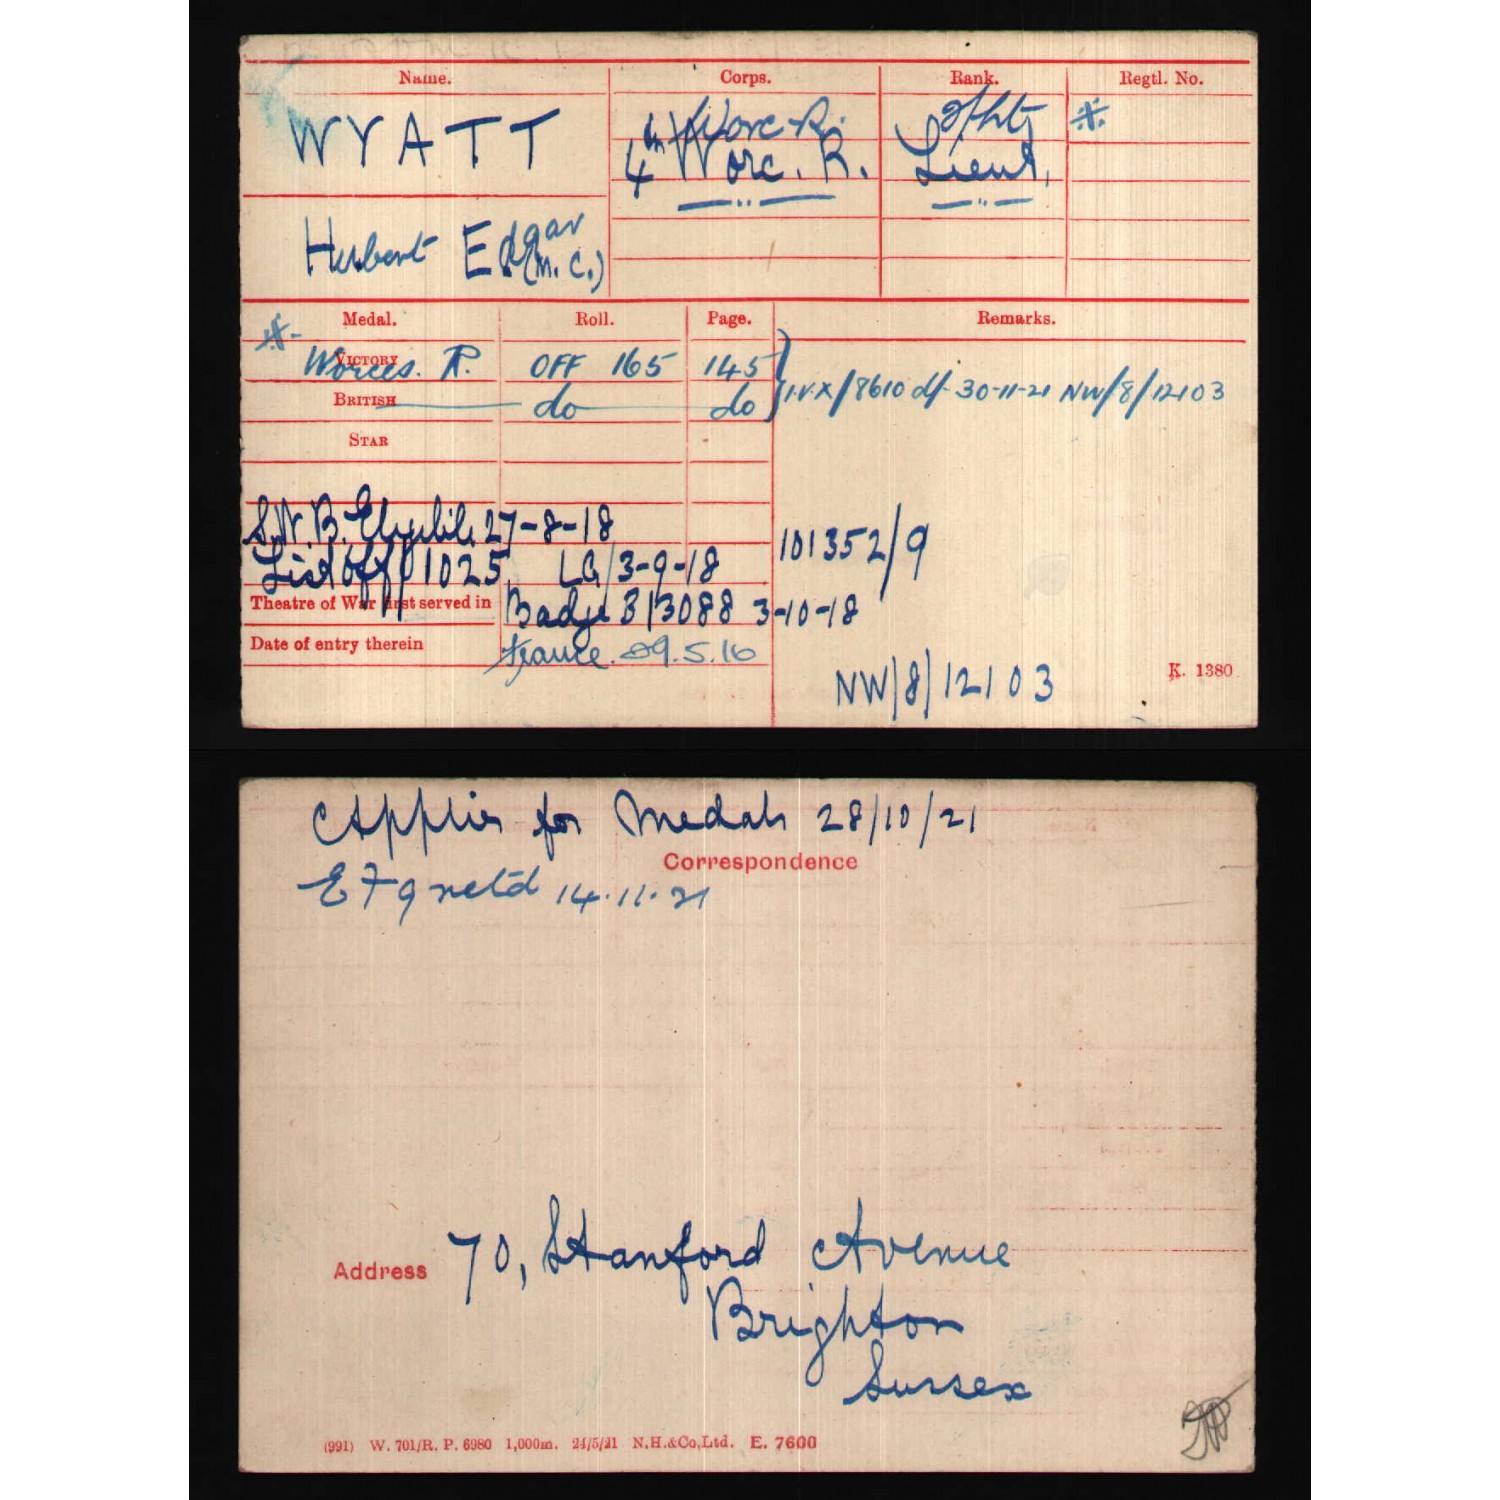 Name. Corps. Rank. Regtl. No.
WYATT Worc. R. Lieut *
4th Worc. R. Lieut.
Herbert Edgar
(M.C.)
Medal. Roll. Page. Remarks.
*
VICTORY Worces. R. OFF 165 145 I.V.X/8610 d/- 30-11-21 NW/8/12103
BRITISH do do
STAR
S.W.B. 27-8-18
List Off/1025 LG/3-9-18 101352/9
Theatre of War first served in Badge B/3088 3-10-18
Date of entry therein France. 29.5.16
NW/8/12103
K. 1380
Applies for Medals 28/10/21
Correspondence
EF9 retd 14.11.21
Address 70, Stanford Avenue
Brighton
Sussex
(991) W. 701/R. P. 6980 1,000m. 24/5/21 N.H.&Co,Ltd. E. 7600